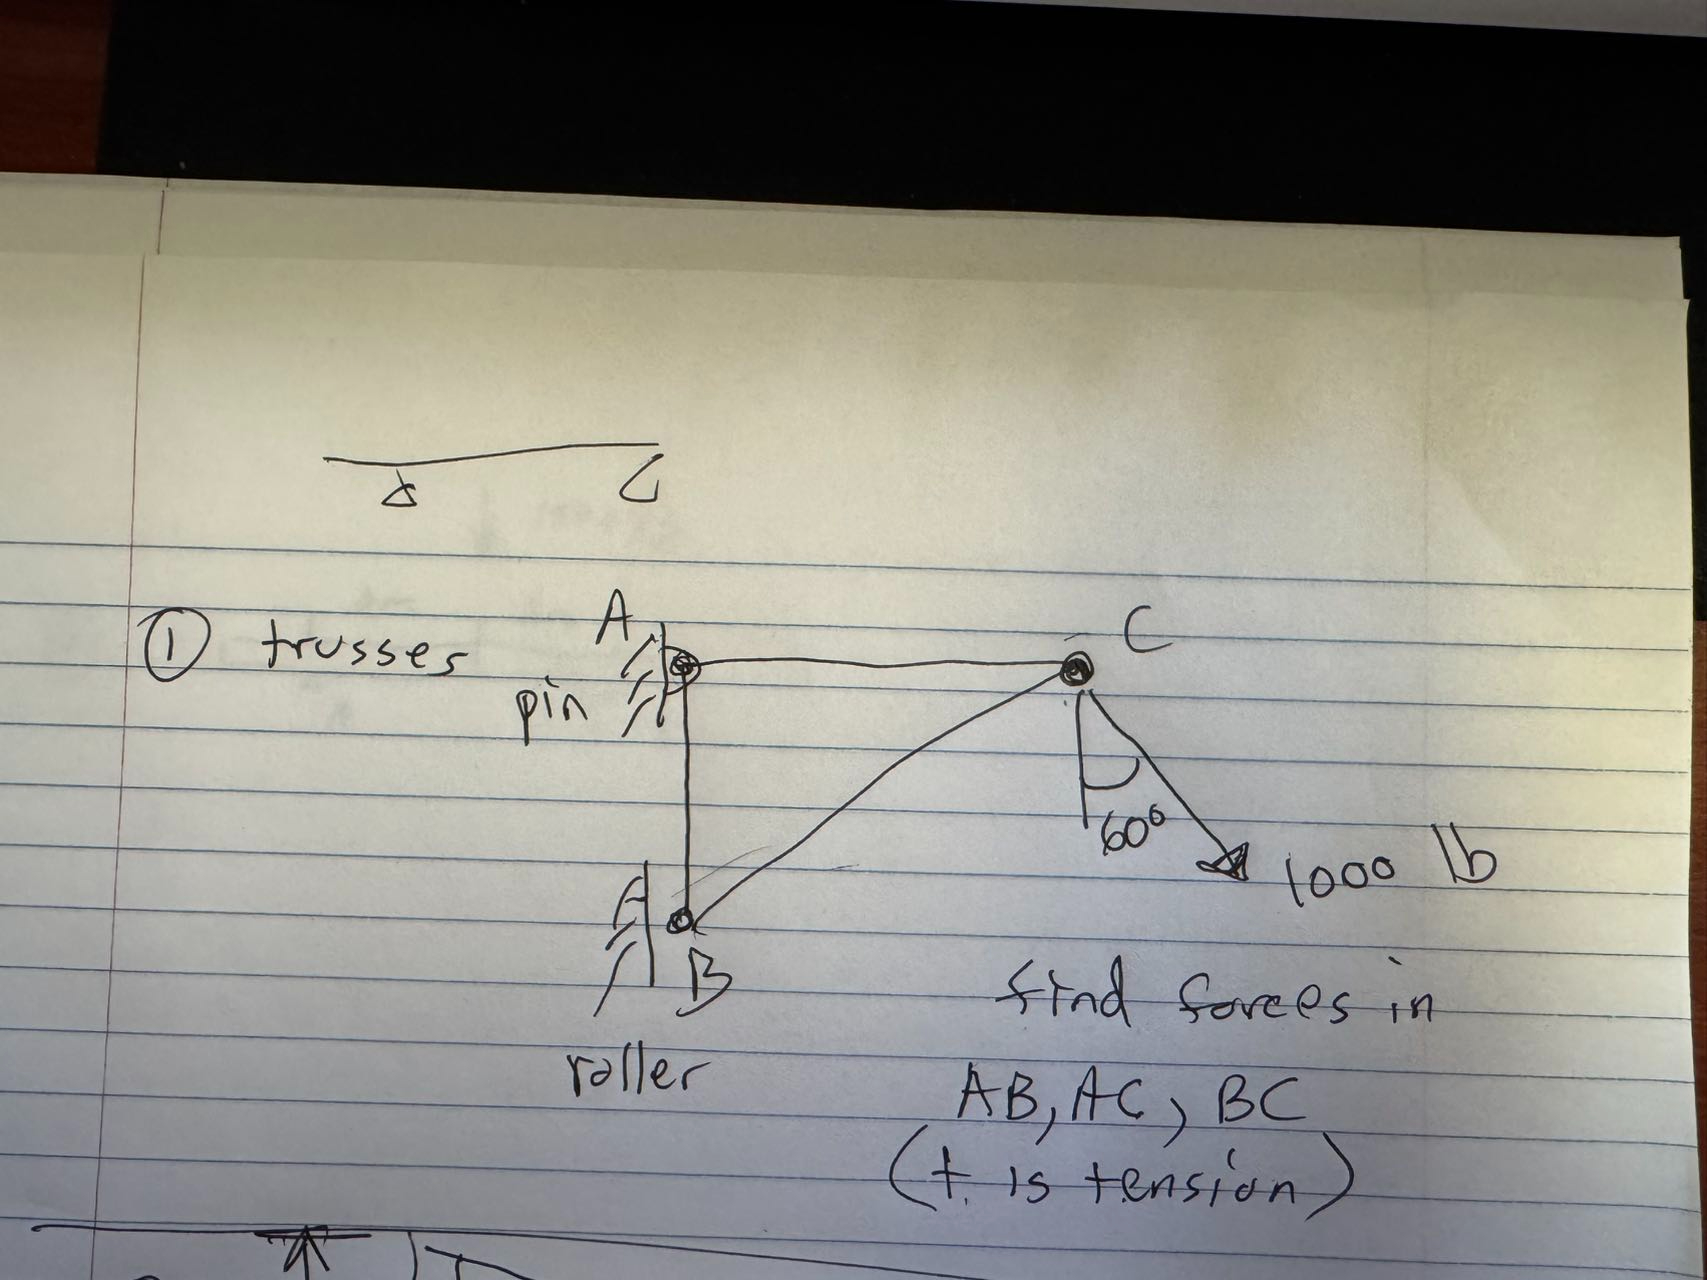 ① trusses
A
pin
C
60°
1000 lb
B
roller
find forces in
AB, AC, BC
(+ is tension)